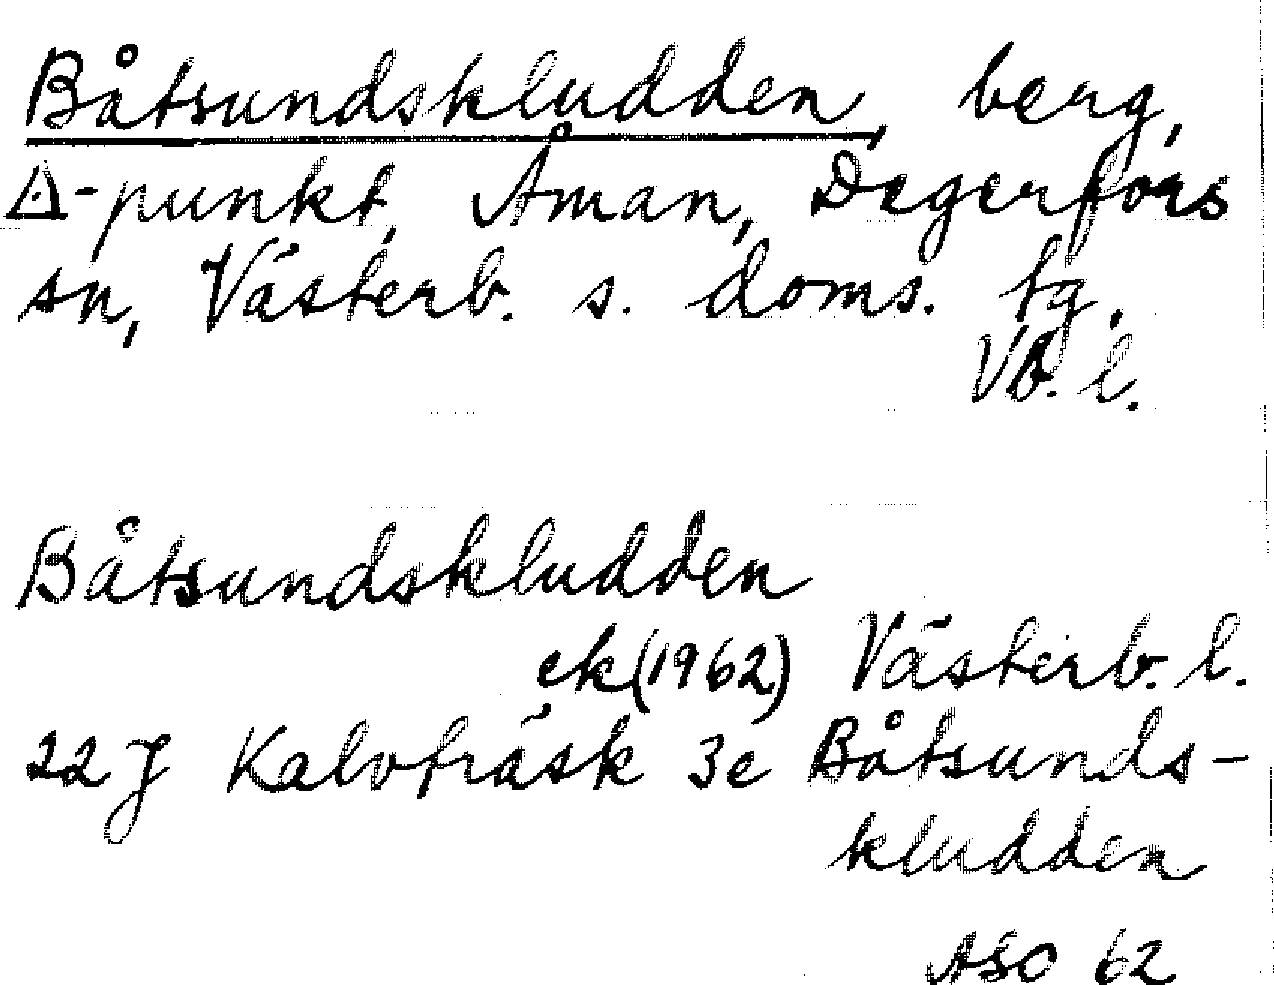 Båtsundskludden, berg,
△-punkt, Åman, Degerfors
sn, Västerb. s. doms. tg,
Vb. l.
Båtsundskludden
ek (1962) Västerb. l.
22 J Kalvträsk 3e Båtsunds-
kludden
ASO 62